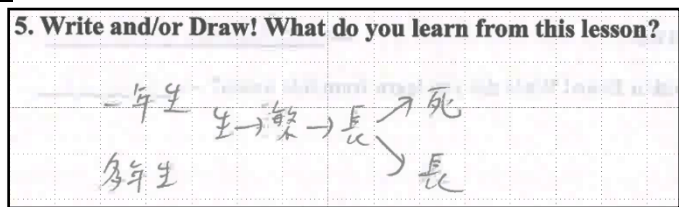 5. Write and/or Draw! What do you learn from this lesson?
一年生
生→繁→長↗死
↘長
多年生